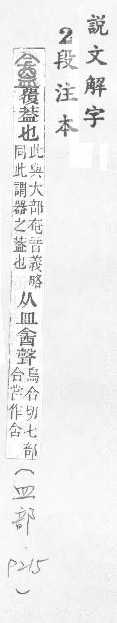 說文解字
2段注本
盦覆蓋也此與大部奄音義略
同此謂器之蓋也
从皿酓聲烏合切七部
合當作含
(皿部.P215)